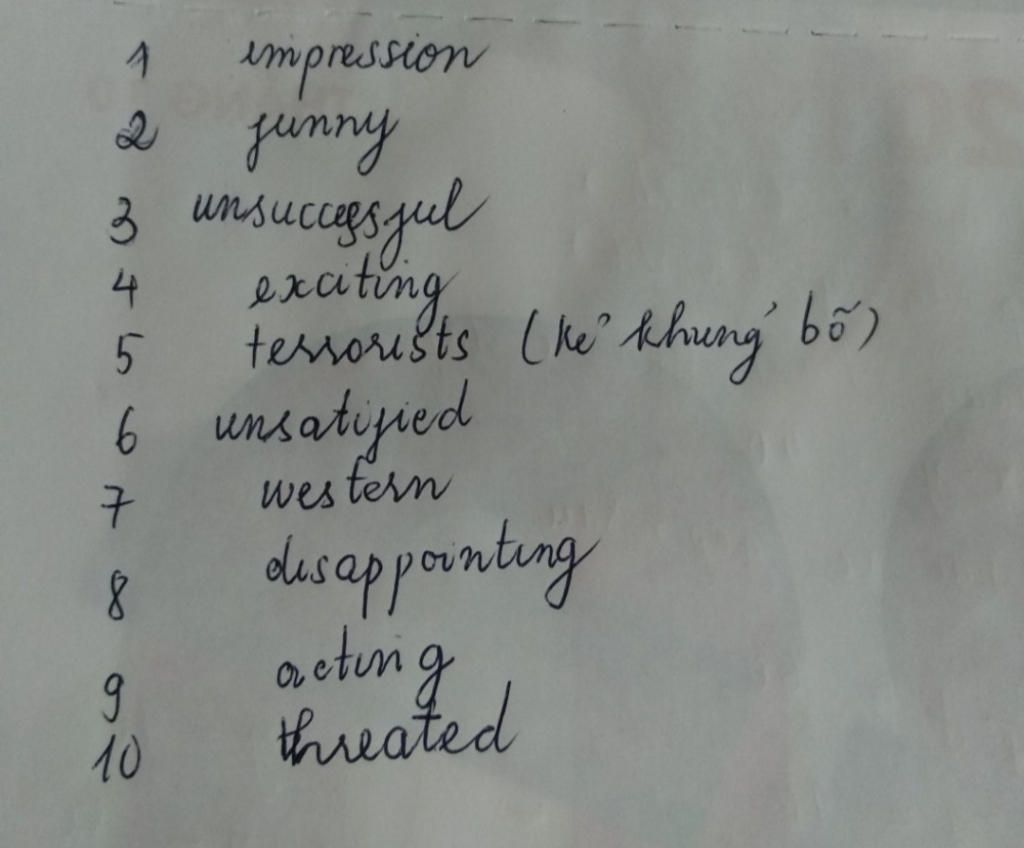 1 impression
2 funny
3 unsuccessful
4 exciting
5 terrorists (kẻ khủng bố)
6 unsatified
7 western
8 disappointing
9 acting
10 threated